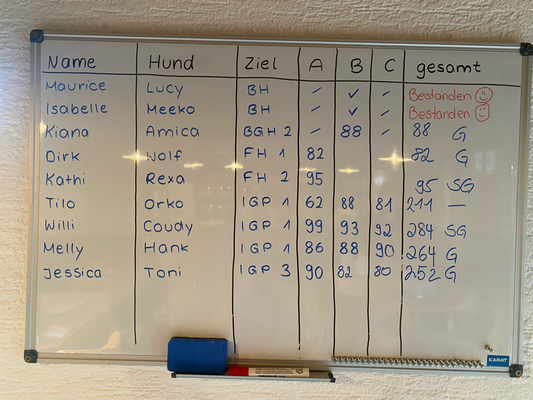 Name Hund Ziel A B C gesamt
Maurice Lucy BH / ✓ / Bestanden ☺
Isabelle Meeko BH / ✓ / Bestanden ☺
Kiana Amica BGH 2 / 88 / 88 G
Dirk Wolf FH 1 82 82 G
Kathi Rexa FH 2 95 95 SG
Tilo Orko IGP 1 62 88 81 211 —
Willi Coudy IGP 1 99 93 92 284 SG
Melly Hank IGP 1 86 88 90 264 G
Jessica Toni IGP 3 90 82 80 252 G
KARAT